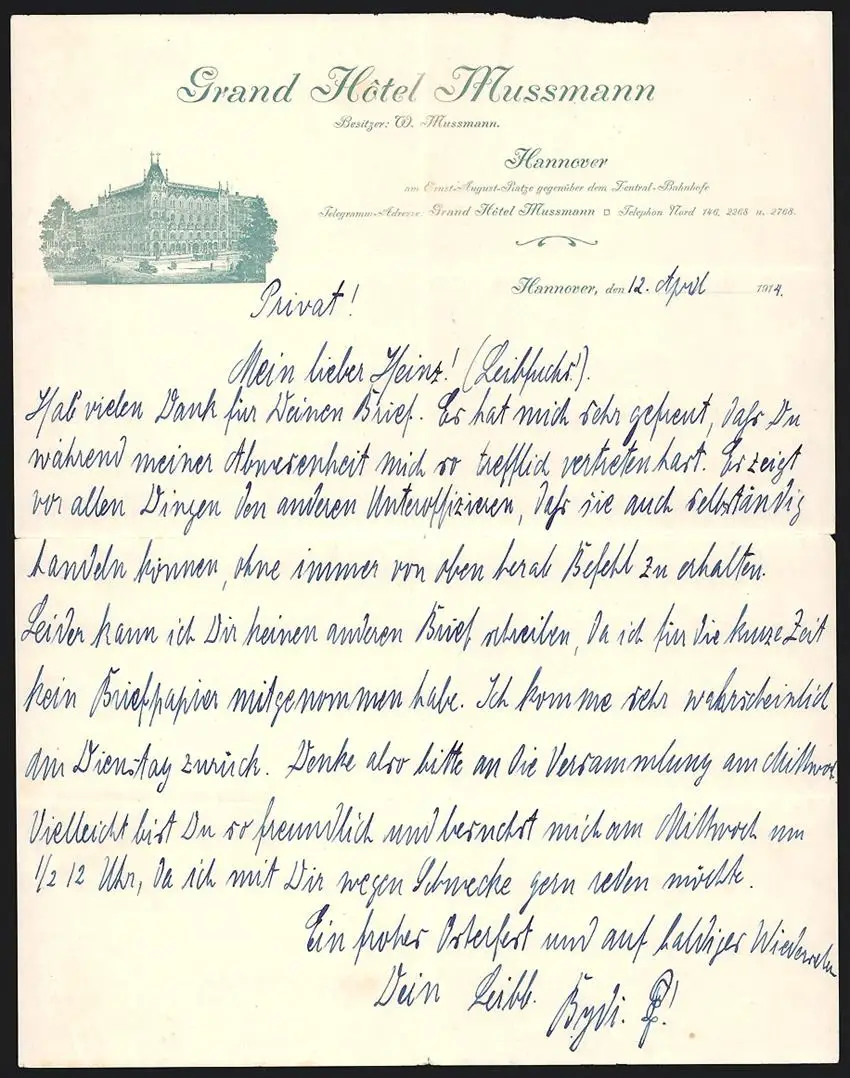 Grand Hôtel Mussmann
Besitzer: W. Mussmann.
Hannover
am Ernst-August-Platze gegenüber dem Zentral-Bahnhofe
Telegramm-Adresse: Grand Hôtel Mussmann Telephon Nord 146, 2268 u. 2768.
Hannover, den 12. April 1914.
Privat!
Mein lieber Heinz! (Leibfuchs!).
Hab vielen Dank für Deinen Brief. Es hat mich sehr gefreut, dass Du
während meiner Abwesenheit mich so trefflich vertreten hast. Es zeigt
vor allen Dingen den anderen Unteroffizieren, dass sie auch selbständig
handeln können, ohne immer von oben herab Befehl zu erhalten.
Leider kann ich Dir keinen anderen Brief schreiben, da ich für die kurze Zeit
kein Briefpapier mitgenommen habe. Ich komme sehr wahrscheinlich
am Dienstag zurück. Denke also bitte an die Versammlung am Mittwoch.
Vielleicht bist Du so freundlich und besuchst mich am Mittwoch um
1/2 12 Uhr, da ich mit Dir wegen Schwecke gern reden möchte.
Ein frohes Osterfest und auf baldiges Wiedersehn
Dein Leibb.